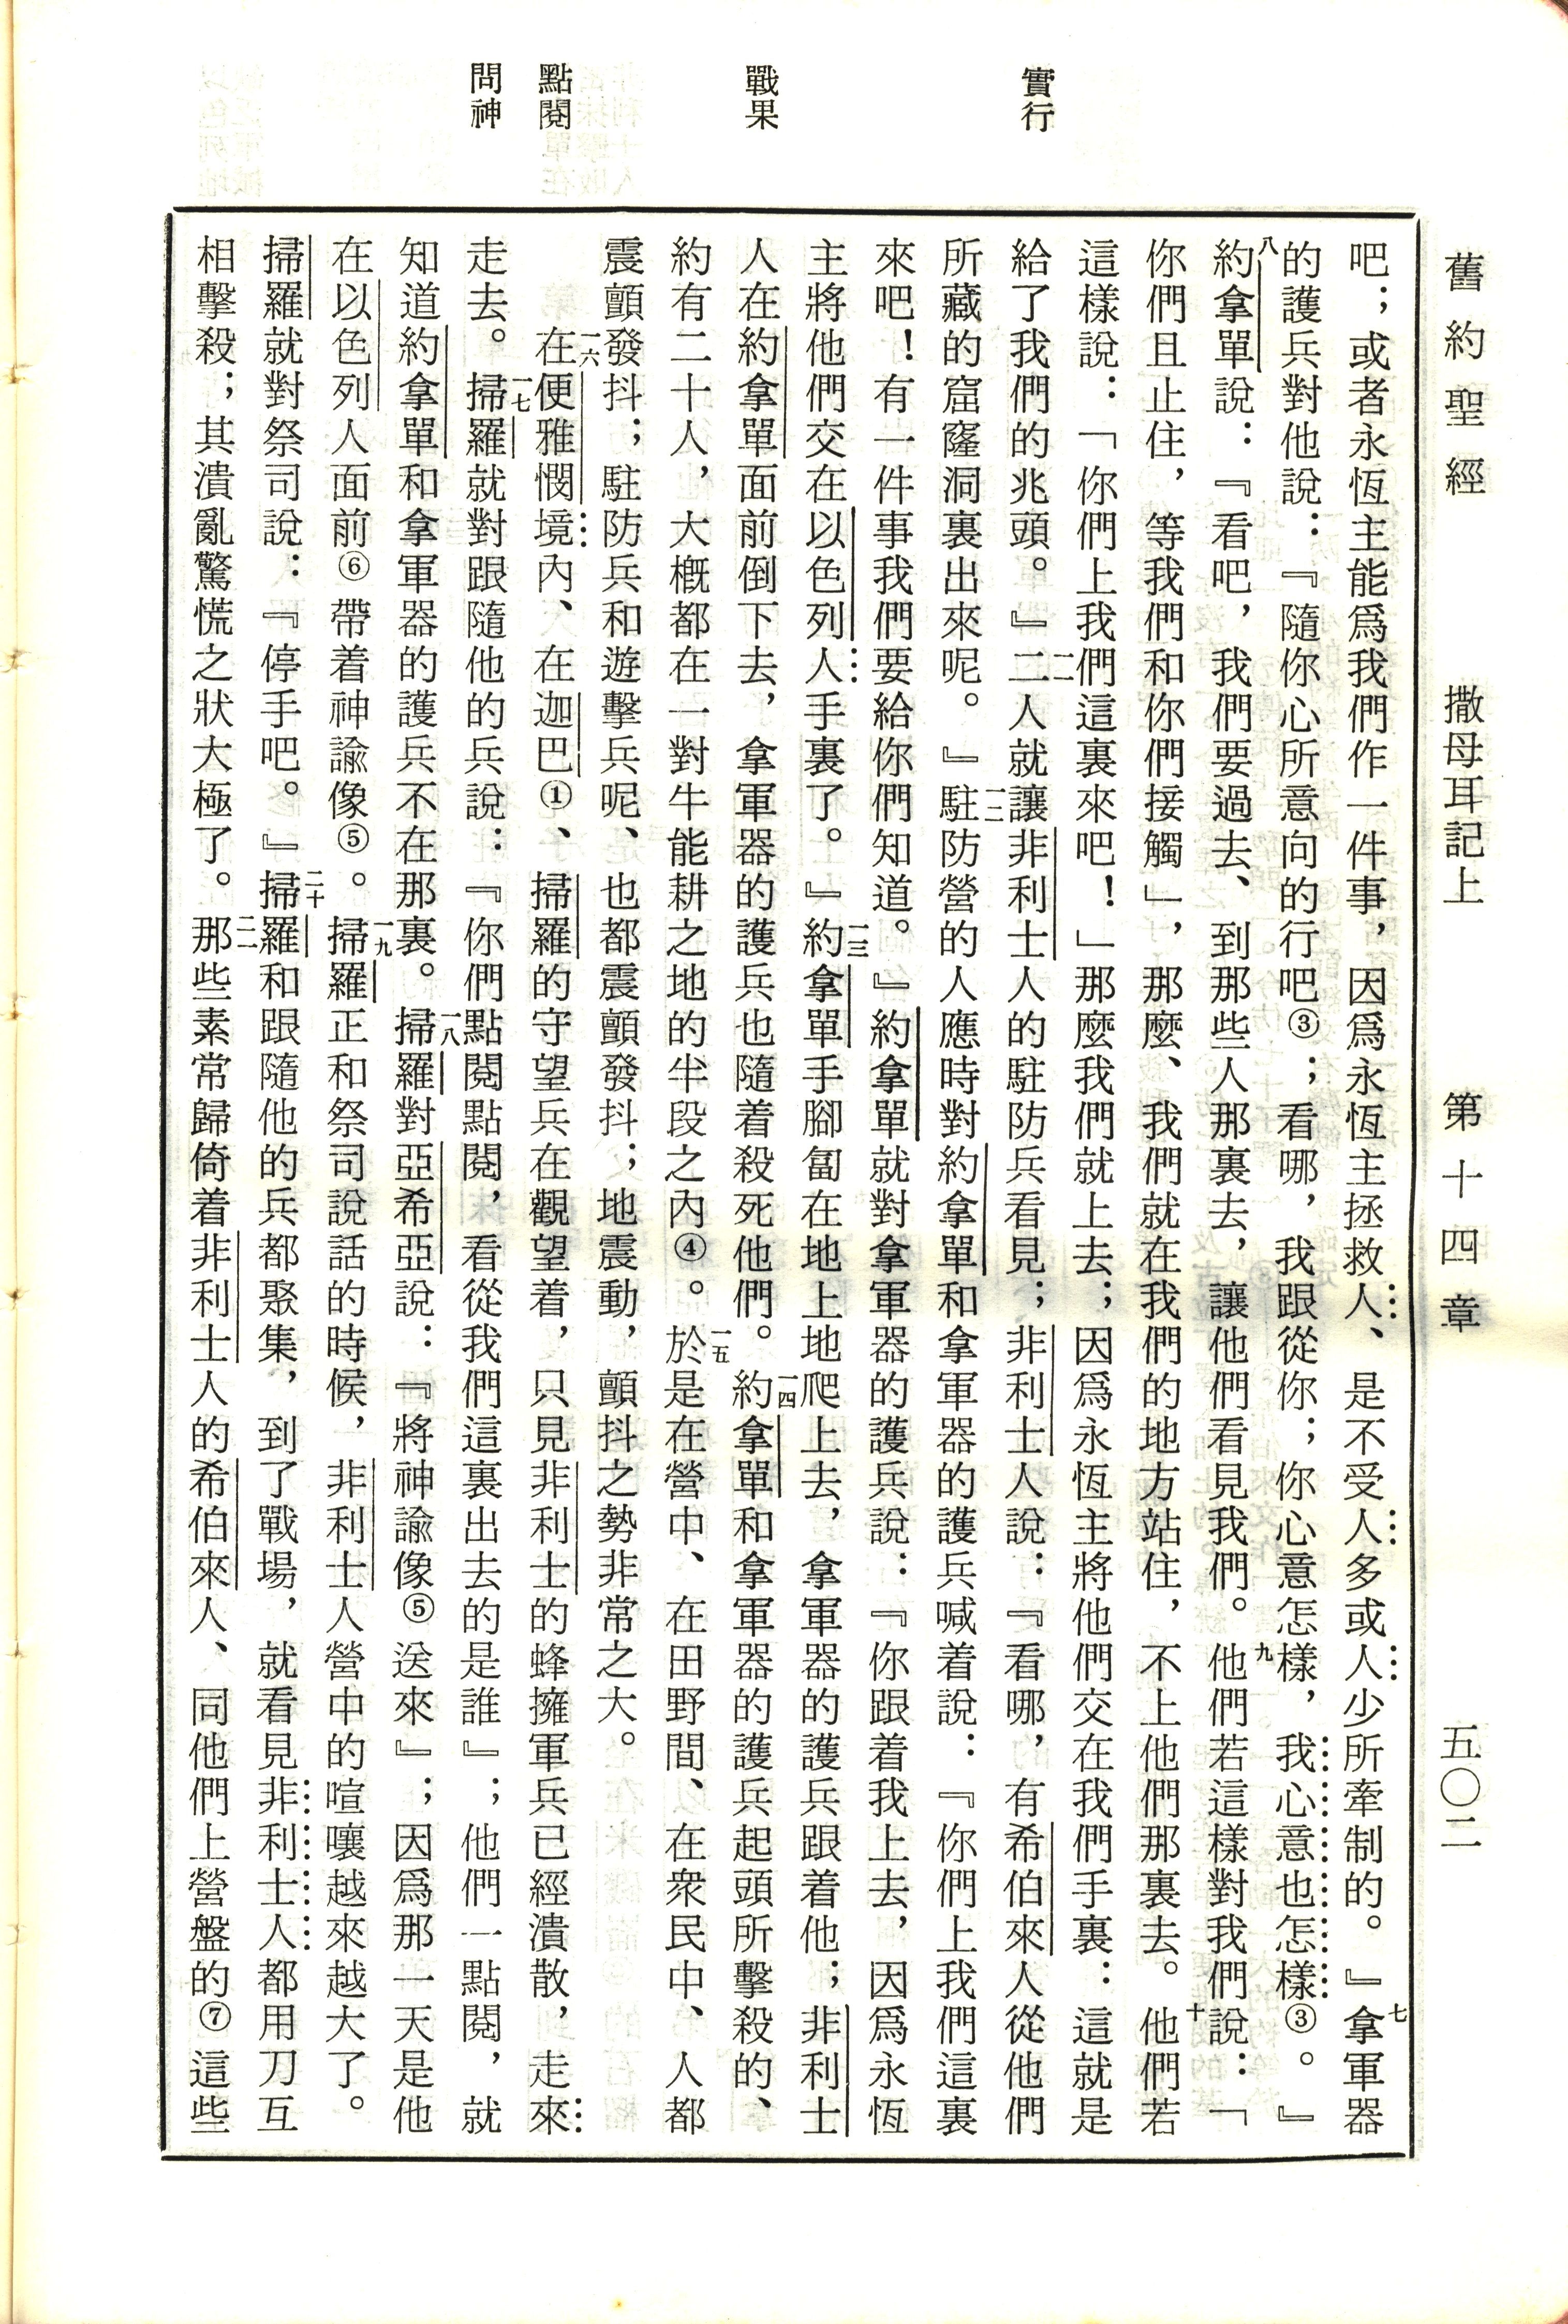 舊約聖經　撒母耳記上　第十四章　五〇二
實行
戰果
點閱
問神
吧；或者永恆主能爲我們作一件事，因爲永恆主拯救人、是不受人多或人少所牽制的。』七拿軍器
的護兵對他說：『隨你心所意向的行吧③；看哪，我跟從你；你心意怎樣，我心意也怎樣③。』
八約拿單說：『看吧，我們要過去、到那些人那裏去，讓他們看見我們。九他們若這樣對我們說：「
你們且止住，等我們和你們接觸」，那麼、我們就在我們的地方站住，不上他們那裏去。十他們若
這樣說：「你們上我們這裏來吧！」那麼我們就上去；因爲永恆主將他們交在我們手裏：這就是
給了我們的兆頭。』一一二人就讓非利士人的駐防兵看見；非利士人說：『看哪，有希伯來人從他們
所藏的窟窿洞裏出來呢。』一二駐防營的人應時對約拿單和拿軍器的護兵喊着說：『你們上我們這裏
來吧！有一件事我們要給你們知道。』約拿單就對拿軍器的護兵說：『你跟着我上去，因爲永恆
主將他們交在以色列人手裏了。』一三約拿單手腳匐在地上地爬上去，拿軍器的護兵跟着他；非利士
人在約拿單面前倒下去，拿軍器的護兵也隨着殺死他們。一四約拿單和拿軍器的護兵起頭所擊殺的、
約有二十人，大概都在一對牛能耕之地的半段之內④。一五於是在營中、在田野間、在衆民中、人都
震顫發抖；駐防兵和遊擊兵呢、也都震顫發抖；地震動，顫抖之勢非常之大。
一六在便雅憫境內、在迦巴①、掃羅的守望兵在觀望着，只見非利士的蜂擁軍兵已經潰散，走來
走去。一七掃羅就對跟隨他的兵說：『你們點閱點閱，看從我們這裏出去的是誰』；他們一點閱，就
知道約拿單和拿軍器的護兵不在那裏。一八掃羅對亞希亞說：『將神諭像⑤送來』；因爲那一天是他
在以色列人面前⑥帶着神諭像⑤。一九掃羅正和祭司說話的時候，非利士人營中的喧嚷越來越大了。
掃羅就對祭司說：『停手吧。』二十掃羅和跟隨他的兵都聚集，到了戰場，就看見非利士人都用刀互
相擊殺；其潰亂驚慌之狀大極了。二一那些素常歸倚着非利士人的希伯來人、同他們上營盤的⑦這些